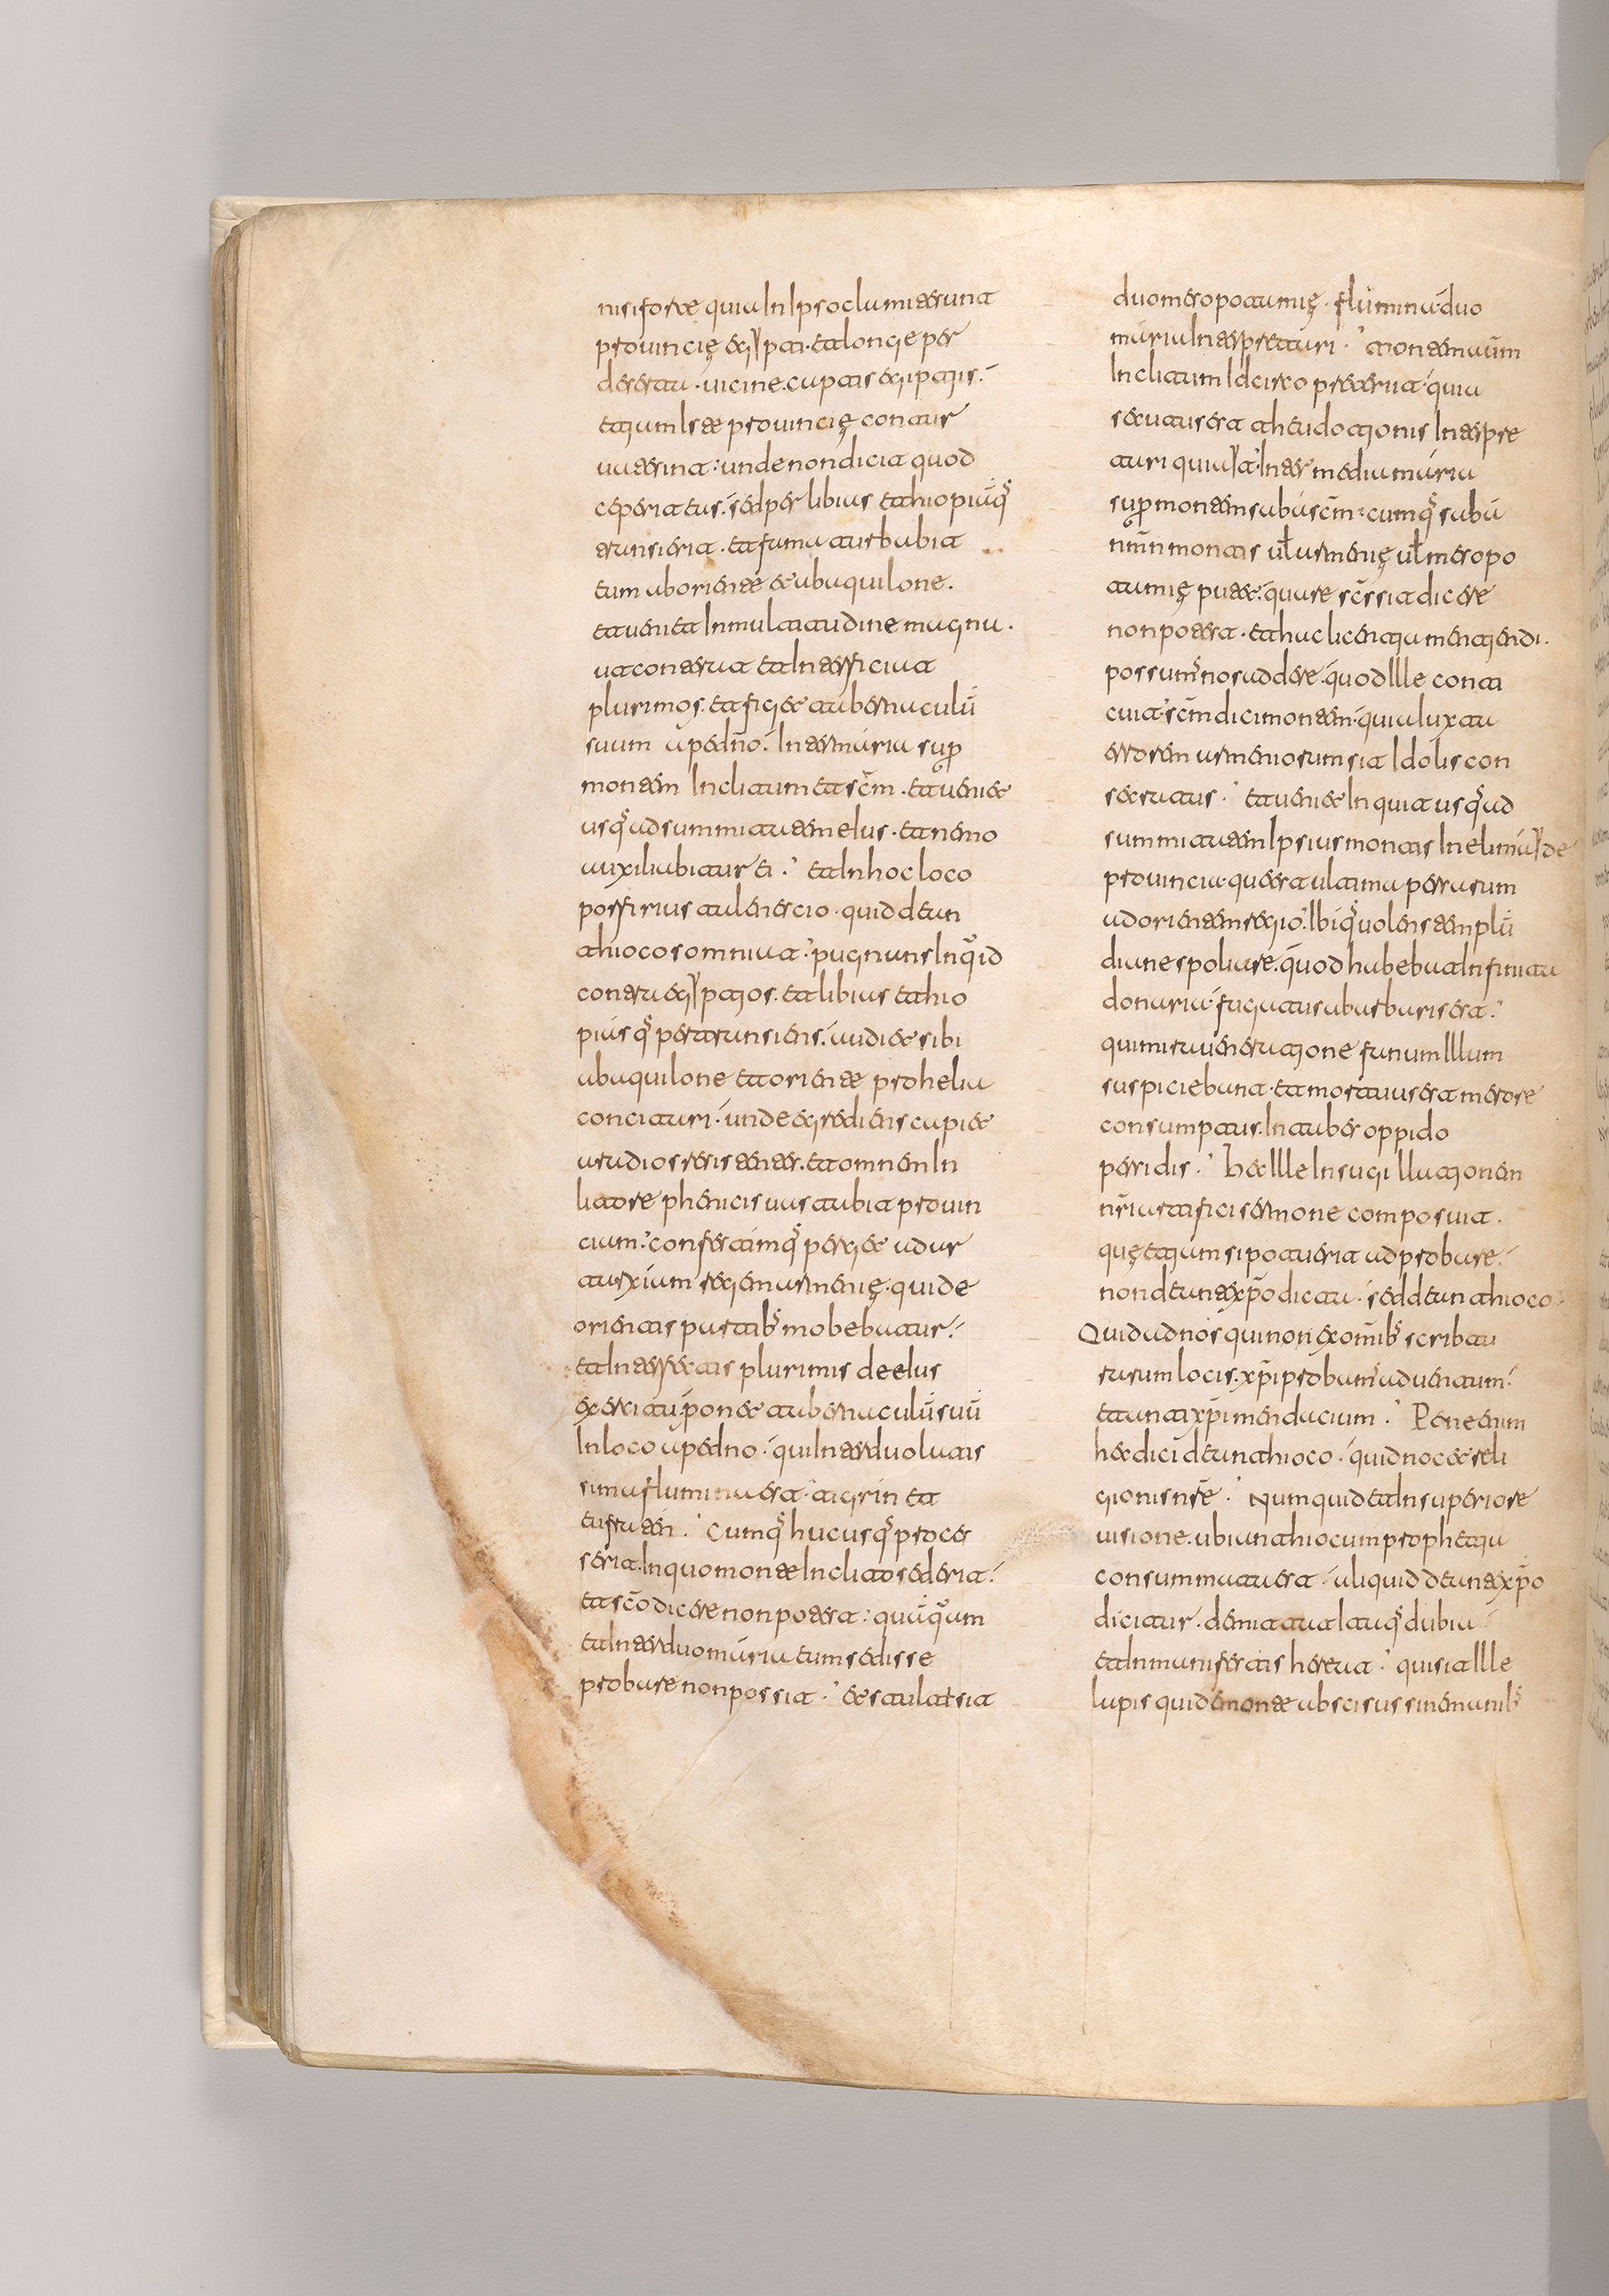 nisi forte quia In Ipso clamiterunt
prouincię egypti. et longe per
deserta. uicine. captis egiptiis.
etiam Iste prouincię contur
uate sint: unde non dicit quod
ceperit eus. sed per libias ethiopiāq;
transierit. et fama turbabit
eum ab oriente et ab aquilone.
et ueniet In multitudine magna.
ut conterat et Interficiat
plurimos. et figet tabernaculū
suum apedno. Inter maria supr
montem Inclitum et scm̄. et ueniet
usq; ad summitatem eius. et nemo
auxiliabitur ei. et In hoc loco
porfirius tale nescio quid de an
thioco somniat. pugnans Inquid
contra egyptios. et libias ethio
piasq; pertransiens. audiet sibi
ab aquilone et oriente prohelia
concitari. unde egrediens capiet
aradios resistentes. et omnem In
litore phenicis uastabit prouin
ciam. confestimq; perget ad ar
tarxiam regem armenię. qui de
orientis partib; mobebatur.
et Interfectis plurimis de eius
exercitu. ponet tabernaculū suū
In loco apedno. qui Inter duo latis
sima flumina est tigrin et
eufraten. Cumq; hucusq; proces
serit. In quo monte Inclito sederit.
et scō dicere non potest. quāquam
et Inter duo maria eum sedisse
probare non possit. et stultum sit
duo mesopotamię. flumina. duo
maria Interpretari. montem autem
Inclitum Idcirco preteriit. quia
secutus est theudotionis Interpre
tationem qui ait. Inter media maria
supr montem sabi scm̄. cumq; sabi
nomen montis uł armenię uł mesopo
tamię putet. quare scm̄ sit dicere
non potest. et hac licentia mentiendi.
possumus nos addere. quod Ille conti
cuit. scm̄ dici montem. quia Iuxta
errorem armeniorum sit Idolis con
secratus. et ueniet Inquit usq; ad
summitatem Ipsius montis In elimayde
prouincia. que est ultima persarum
ad orientem regio. Ibiq; uolens templū
diane spoliare. quod habebat Infinita
donaria. fugatus a barbaris est.
qui mira ueneratione fanum Illum
suspiciebant. et mortuus est merore
consumptus. In tabes oppido
peridis. hec Ille In sugillationem
nr̄i artifici sermone composuit.
quę etiam si potuerit ad probare.
non de antexp̄o dicta. sed de anthioco.
Quid ad nos qui non ex om̄ib; scribtu
rarum locis. xp̄i probamus aduentum.
et antixp̄i mendacium. Pone enim
hec dici de anthioco. quid nocet reli
gioni nr̄e. Numquid et In superiore
uisione. ubi In anthiocum prophetia
consummata est. aliquid de antexp̄o
dicitur. demittat Itaq; dubia
et In manifestis hereat. quis sit Ille
lapis qui de monte abscisus sine manib;